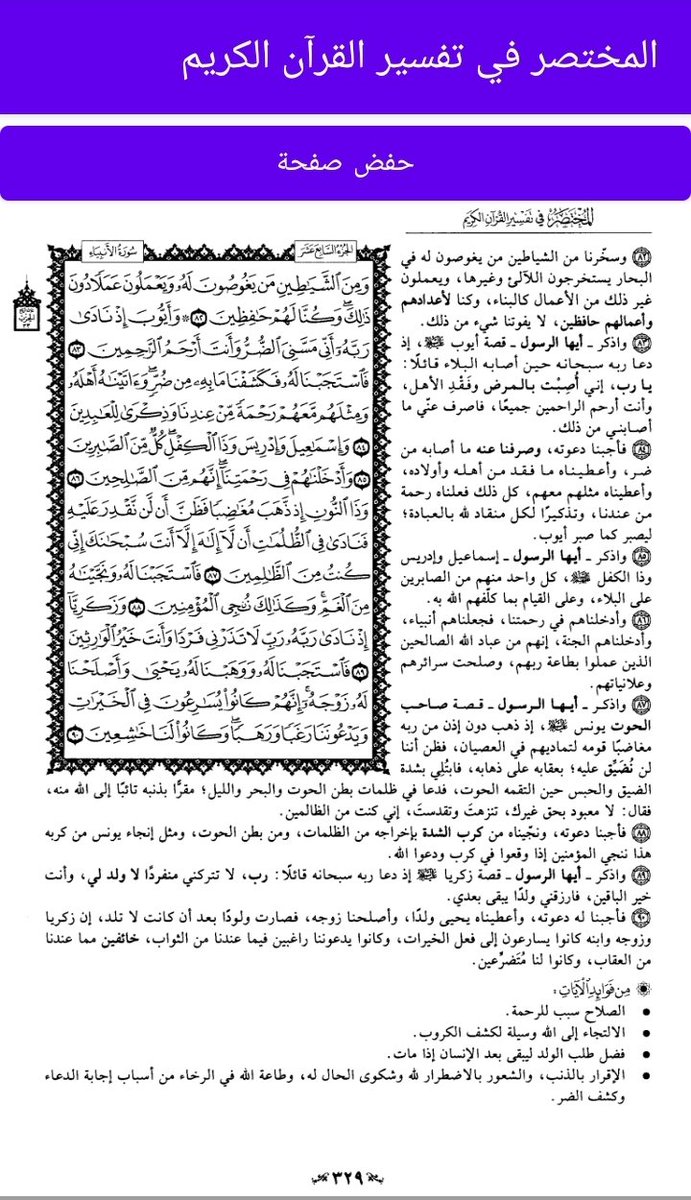 المختصر في تفسير القرآن الكريم
حفض صفحة
المختصر في تفسير القرآن الكريم
الجزء السابع عشر
سورة الأنبياء
وَمِنَ ٱلشَّيَٰطِينِ مَن يَغُوصُونَ لَهُۥ وَيَعْمَلُونَ عَمَلًا دُونَ
ذَٰلِكَۖ وَكُنَّا لَهُمْ حَٰفِظِينَ ٨٢ ۞ وَأَيُّوبَ إِذْ نَادَىٰ
رَبَّهُۥٓ أَنِّي مَسَّنِيَ ٱلضُّرُّ وَأَنتَ أَرْحَمُ ٱلرَّٰحِمِينَ ٨٣
فَٱسْتَجَبْنَا لَهُۥ فَكَشَفْنَا مَا بِهِۦ مِن ضُرٍّۖ وَءَاتَيْنَٰهُ أَهْلَهُۥ
وَمِثْلَهُم مَّعَهُمْ رَحْمَةً مِّنْ عِندِنَا وَذِكْرَىٰ لِلْعَٰبِدِينَ
٨٤ وَإِسْمَٰعِيلَ وَإِدْرِيسَ وَذَا ٱلْكِفْلِۖ كُلٌّ مِّنَ ٱلصَّٰبِرِينَ
٨٥ وَأَدْخَلْنَٰهُمْ فِي رَحْمَتِنَآۖ إِنَّهُم مِّنَ ٱلصَّٰلِحِينَ ٨٦
وَذَا ٱلنُّونِ إِذ ذَّهَبَ مُغَٰضِبًا فَظَنَّ أَن لَّن نَّقْدِرَ عَلَيْهِ
فَنَادَىٰ فِي ٱلظُّلُمَٰتِ أَن لَّآ إِلَٰهَ إِلَّآ أَنتَ سُبْحَٰنَكَ إِنِّي
كُنتُ مِنَ ٱلظَّٰلِمِينَ ٨٧ فَٱسْتَجَبْنَا لَهُۥ وَنَجَّيْنَٰهُ
مِنَ ٱلْغَمِّۚ وَكَذَٰلِكَ نُـۨجِي ٱلْمُؤْمِنِينَ ٨٨ وَزَكَرِيَّآ
إِذْ نَادَىٰ رَبَّهُۥ رَبِّ لَا تَذَرْنِي فَرْدًا وَأَنتَ خَيْرُ ٱلْوَٰرِثِينَ
٨٩ فَٱسْتَجَبْنَا لَهُۥ وَوَهَبْنَا لَهُۥ يَحْيَىٰ وَأَصْلَحْنَا
لَهُۥ زَوْجَهُۥٓۚ إِنَّهُمْ كَانُوا۟ يُسَٰرِعُونَ فِي ٱلْخَيْرَٰتِ
وَيَدْعُونَنَا رَغَبًا وَرَهَبًاۖ وَكَانُوا۟ لَنَا خَٰشِعِينَ ٩٠
٨٢ وسخّرنا من الشياطين من يغوصون له في
البحار يستخرجون اللآلئ وغيرها، ويعملون
غير ذلك من الأعمال كالبناء، وكنا لأعدادهم
وأعمالهم حافظين، لا يفوتنا شيء من ذلك.
٨٣ واذكر ـ أيها الرسول ـ قصة أيوب ﷺ، إذ
دعا ربه سبحانه حين أصابه البلاء قائلًا:
يا رب، إني أُصِبْت بالمرض وفَقْدِ الأهل،
وأنت أرحم الراحمين جميعًا، فاصرف عنّي ما
أصابني من ذلك.
٨٤ فأجبنا دعوته، وصرفنا عنه ما أصابه من
ضر، وأعطيناه ما فقد من أهله وأولاده،
وأعطيناه مثلهم معهم، كل ذلك فعلناه رحمة
من عندنا، وتذكيرًا لكل منقاد لله بالعبادة؛
ليصبر كما صبر أيوب.
٨٥ واذكر ـ أيها الرسول ـ إسماعيل وإدريس
وذا الكفل ﷺ، كل واحد منهم من الصابرين
على البلاء، وعلى القيام بما كلّفهم الله به.
٨٦ وأدخلناهم في رحمتنا، فجعلناهم أنبياء،
وأدخلناهم الجنة، إنهم من عباد الله الصالحين
الذين عملوا بطاعة ربهم، وصلحت سرائرهم
وعلانياتهم.
٨٧ واذكر ـ أيها الرسول ـ قصة صاحب
الحوت يونس ﷺ، إذ ذهب دون إذن من ربه
مغاضبًا قومه لتماديهم في العصيان، فظن أننا
لن نُضَيِّق عليه؛ بعقابه على ذهابه، فابتُلِي بشدة
الضيق والحبس حين التقمه الحوت، فدعا في ظلمات بطن الحوت والبحر والليل؛ مقرًّا بذنبه تائبًا إلى الله منه،
فقال: لا معبود بحق غيرك، تنزهتَ وتقدستَ، إني كنت من الظالمين.
٨٨ فأجبنا دعوته، ونجّيناه من كرب الشدة بإخراجه من الظلمات، ومن بطن الحوت، ومثل إنجاء يونس من كربه
هذا ننجي المؤمنين إذا وقعوا في كرب ودعوا الله.
٨٩ واذكر ـ أيها الرسول ـ قصة زكريا ﷺ إذ دعا ربه سبحانه قائلًا: رب، لا تتركني منفردًا لا ولد لي، وأنت
خير الباقين، فارزقني ولدًا يبقى بعدي.
٩٠ فأجبنا له دعوته، وأعطيناه يحيى ولدًا، وأصلحنا زوجه، فصارت ولودًا بعد أن كانت لا تلد، إن زكريا
وزوجه وابنه كانوا يسارعون إلى فعل الخيرات، وكانوا يدعوننا راغبين فيما عندنا من الثواب، خائفين مما عندنا
من العقاب، وكانوا لنا مُتَضرِّعين.
من فوائد الآيات:
• الصلاح سبب للرحمة.
• الالتجاء إلى الله وسيلة لكشف الكروب.
• فضل طلب الولد ليبقى بعد الإنسان إذا مات.
• الإقرار بالذنب، والشعور بالاضطرار لله وشكوى الحال له، وطاعة الله في الرخاء من أسباب إجابة الدعاء
وكشف الضر.
٣٢٩